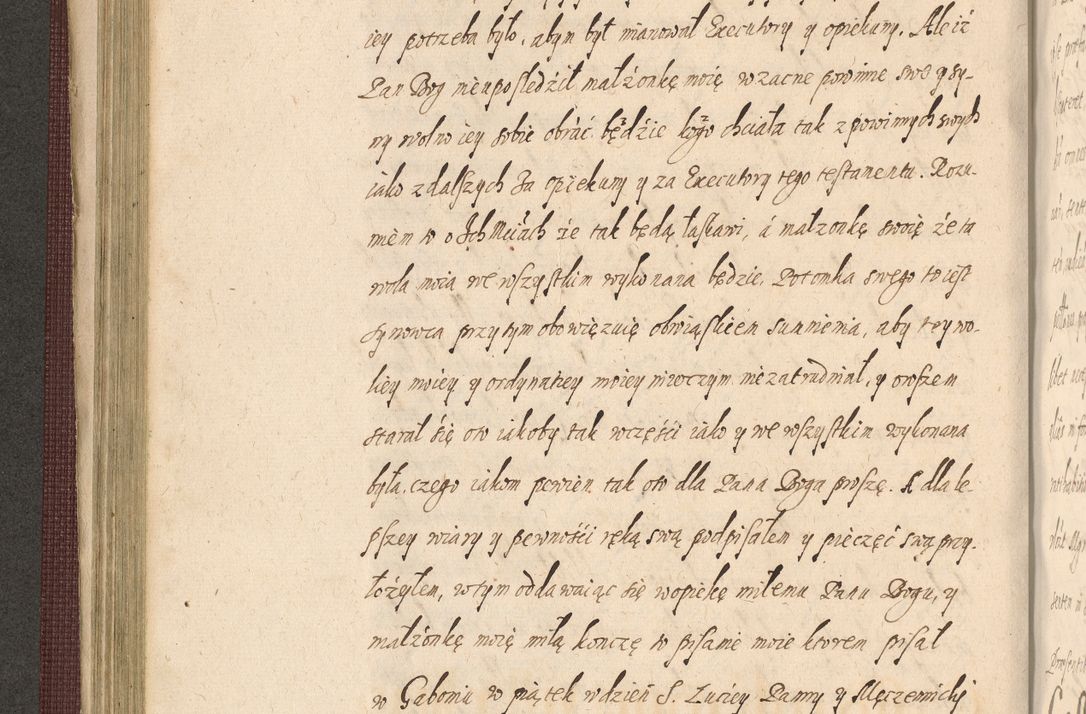 iey potrzeba było, abym był mianował Executory y opiekuny. Ale iż
Pan Bog nieupośledźił małżonkę moię w zacne powinne swe y sy-
ny wolno iey sobie obráć będźie kogo chciała tak z powinnych swych
iako z dalszych za opiekuny y za Executory tego testamentu. Rozu-
mem w o Ich Mćiách że tak będą łaskawi, á małzonkę swoię że ta
wola moia we wszystkim wykonana będzie. Potomka swego to iest
synowca przytym obowięzuię obwiąskiem sumnienia, aby tey wo-
liey moiey y ordynatiey moiey niwoczym niezatrudniał, y owszem
starał się oto iakoby tak wczęśći iako y we wszystkim wykonana
była. czego iakom pewien tak oto dla Pana Boga proszę. A dla le-
pszey wiary y pewnośći ręką swą podpisałem y pieczęć swą przy-
łożyłem, wtym oddawaiąc się w opiekę miłemu Panu Bogu, y
małżonkę moię miłą kończę to pisanie moie ktorem pisał
w Gaboniu w piątek w dzień S. Luciey Panny y Męczennicki